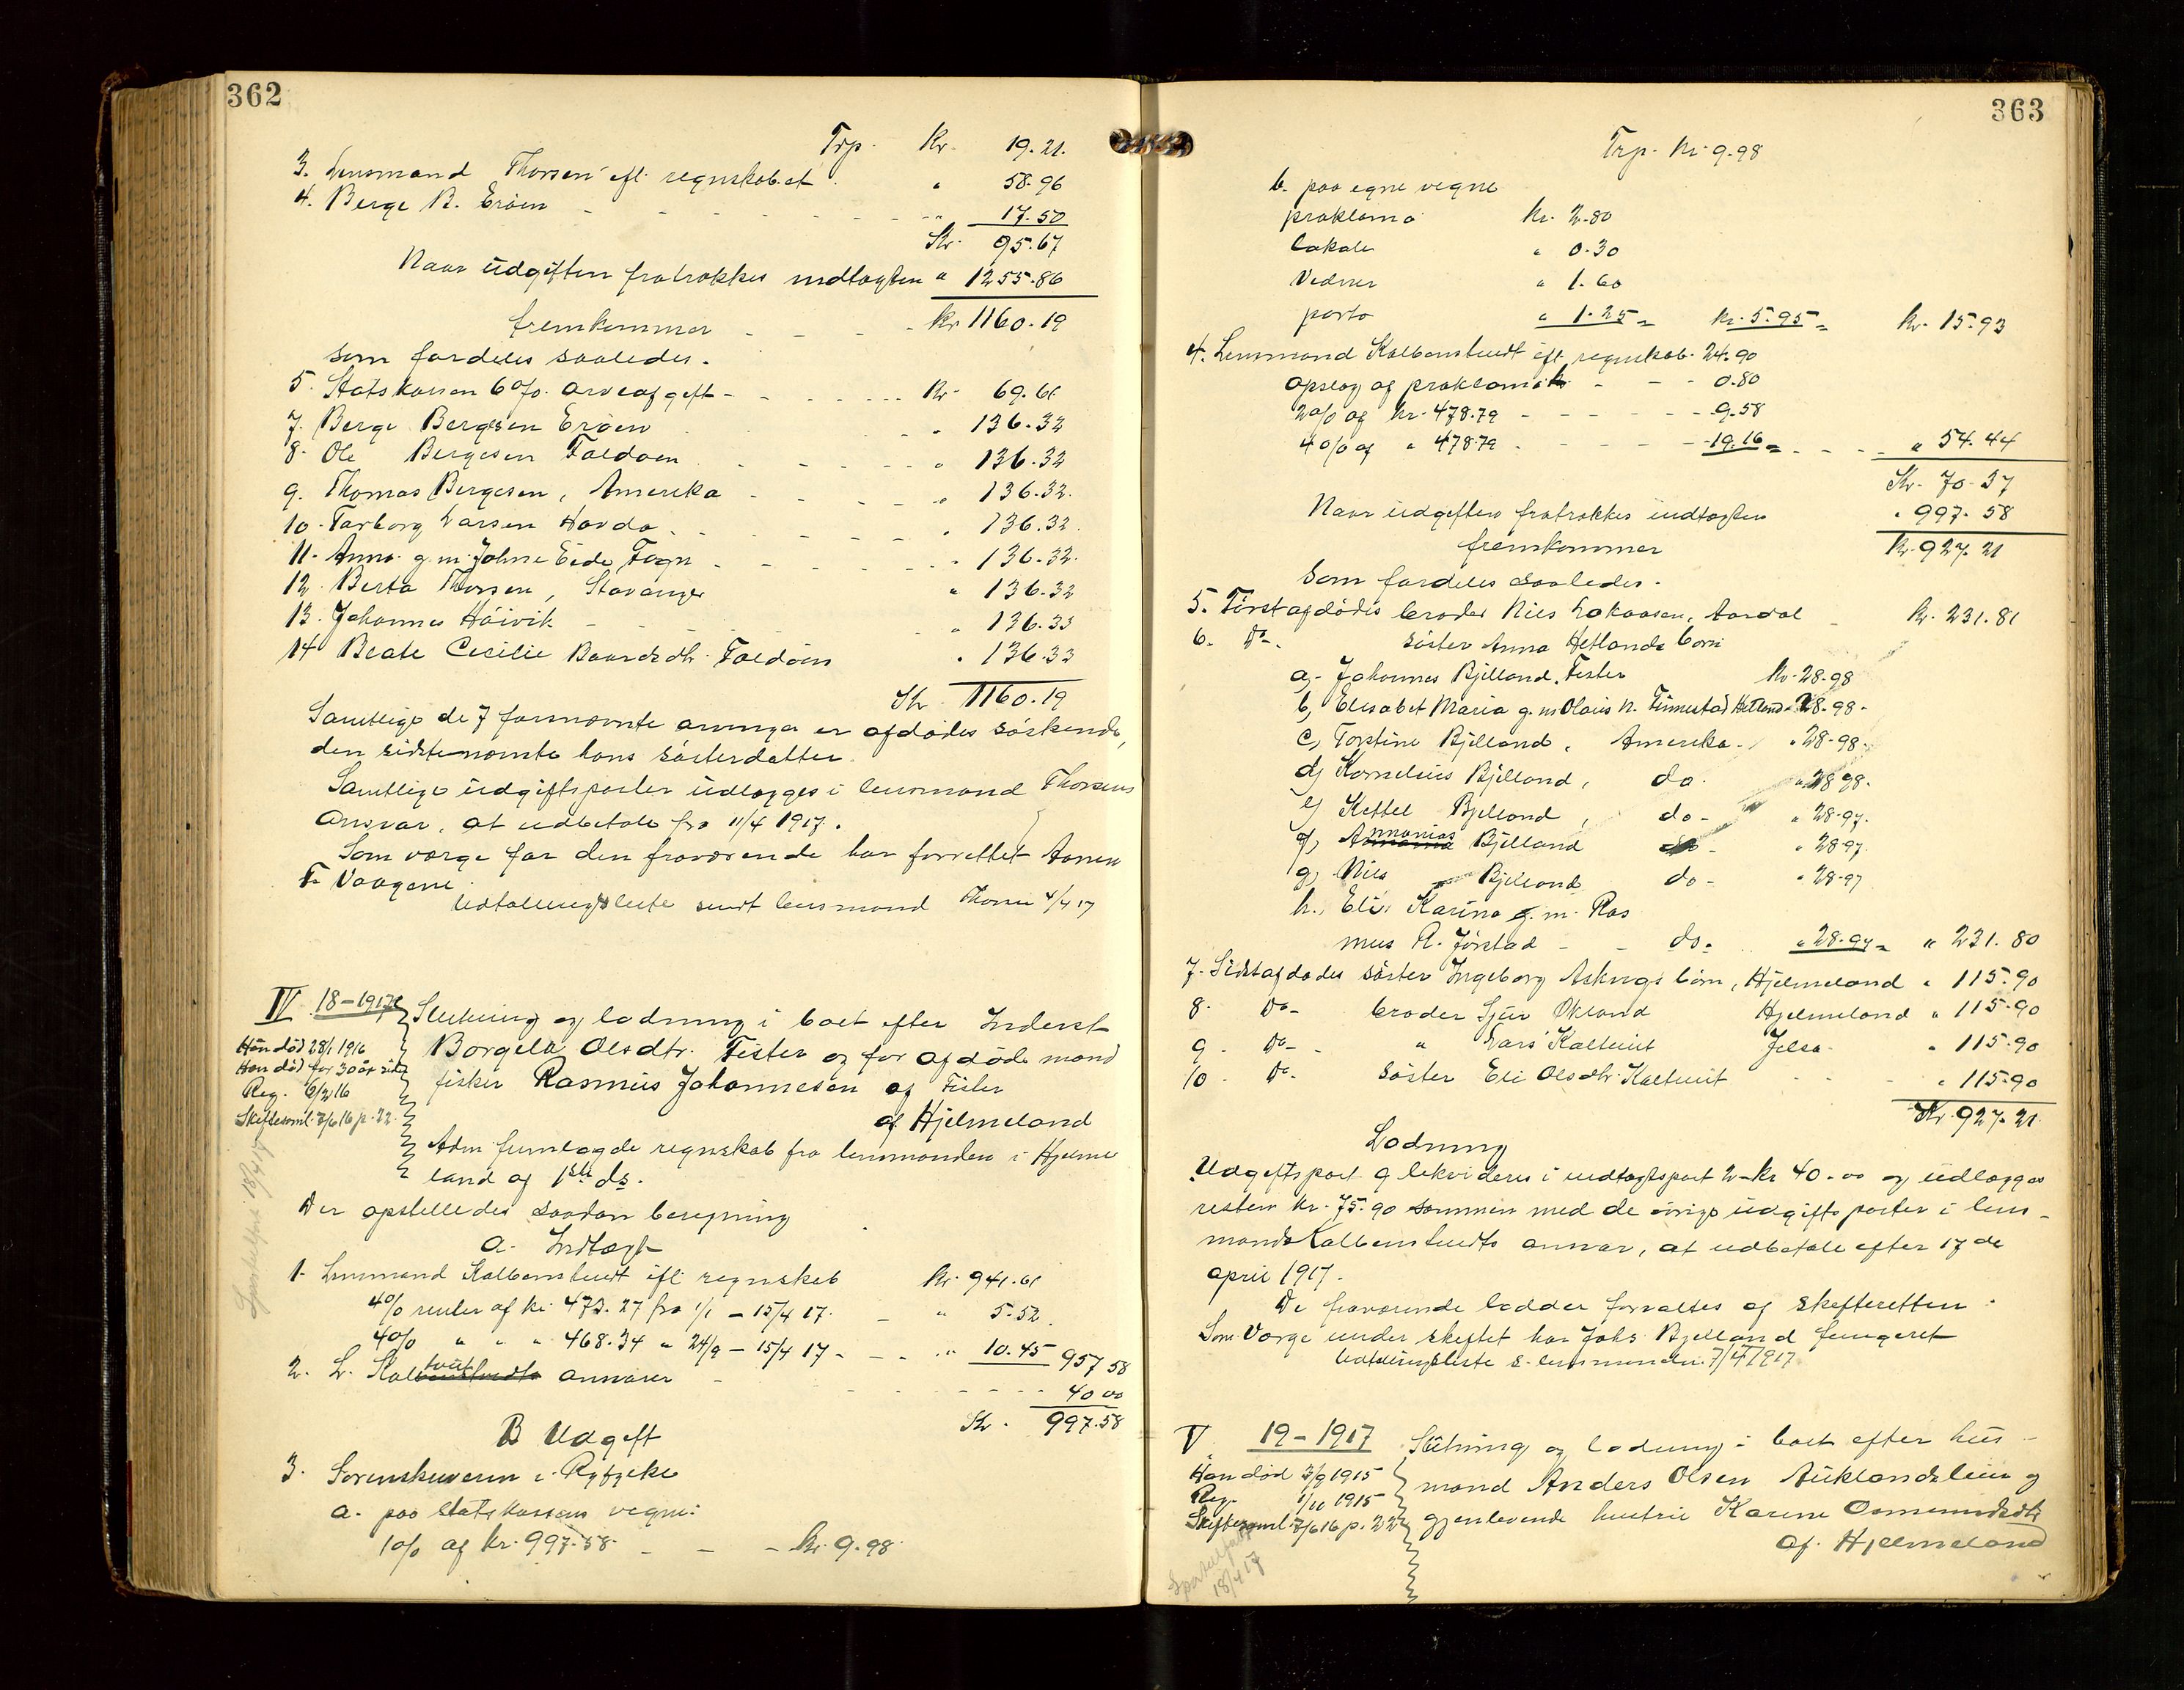 362
Trp. Kr. 19.21.
3. Lensmand Thorsen efl. regnskabet " 58.96
4. Berge B. Eröen - - - - - - " 17.50
Kr. 95.67
Naar udgiften fratrækkes indtægten " 1255.86
fremkommer - - - - Kr 1160.19
som fordeles saaledes.
5. Statskassen 6 o/o. arveafgeft - - - - Kr. 69.61
7. Berge Bergesen Eröen " 136.32
8. Ole Bergesen Foldöen - - - - " 136.32
9. Thomas Bergesen, Amerika - - - " 136.32.
10. Torborg Larsen Havda - - - - " 136.32.
11. Anna g.m. Johne Eide, Fogn - - - - " 136.32.
12. Berta Thorsen, Stavanger " 136.32
13. Johannes Höivik - - - " 136.33
14 Beate Cecilie Baardsdtr. Foldöen " 136.33
Kr. 1160.19
Samtlige de 7 fornævnte arvinger er afdödes söskende,
den sidstenævnte hans sösterdatter.
Samtlige udgiftsposter udlægges i lensmand Thorsens
ansvar, at udbetale fra 11/4 1917.
Som værge for den fraværende har forrettet Aanen
T. Vaagene
Udtællingsliste sendt lensmand Thorsen 4/4 17
IV 18-1917
Hun död 28/1 1916
Han död for 30 år sid
Reg. 6/2 16
Skiftesaml. 7/6 16 p. 22.
18/4 17
Slutning og lodning i boet efter Inderst
Borgela Olsdtr. Fister og for afdöde mand
fisker Rasmus Johannesen af Fister
af Hjelmeland
Adm fremlagde regnskab fra lensmanden i Hjelme
land af 1ste ds.
Der opstelledes saadan beregning
a. Indtægt
1. Lensmand Kolbenstvedt efl regnskab Kr. 941.61
4% renter af kr. 473.27 fra 1/1 - 15/4 17. - " 5.52.
4% " " " 468.34 " 24/9 - 15/4 17 - - - " 10.45 957 58
2. L. Kaltveit ansvarer - - - - - 40 00
Kr. 997.58
B Udgift
3. Sorenskriveren i Ryfylke
a. paa Statskassens vegne:
1 o/o af kr. 997.58. - - - Kr. 9.98.
363
Trp. Kr. 9.98
b. paa egne vegne
proklama Kr. 2.80
lokale " 0.30
Vidner " 1.60
porto " 1.25 = Kr. 5.95 = Kr. 15.93
4. Lensmand Kolbenstvedt efl. regnskab. 24.90
opslag af proklama - - - 0.80
2 o/o af kr. 478.79 - - - - - 9.58
4 o/o af " 478.79 - - - - 19.16 = - - - " 54.44
Kr. 70.37
Naar udgiften fratrækkes indtægten " 997.58
fremkommer Kr. 927.21
som fordeles saaledes.
5. Förstafdödes broder Niels Lokaasen, Aardal - Kr. 231.81
6. Do. söster Anna Hetlands börn
a, Johannes Bjelland, Fister Kr. 28.98
b, Elisabet Maria g.m Olaus N. Finnestad Hetland " 28.98.
c, Torstine Bjelland, Amerika. " 28.98.
d, Kornelius Bjelland, do. " 28.98.
e, Kettel Bjelland, do - " 28.97.
f, Annanias Bjelland do - " 28.97.
g, Niels Bjelland do - " 28.97
h., Eli Karina g.m. Ras
mus R. Jörstad - - do. " 28.97 = " 231.80
7. Sidstafdödes söster Ingeborg Askvigs börn, Hjelmeland " 115.90
8. Do - broder Sjur Økland Hjelmeland " 115.90
9. Do - " Lars Kaltveit Jelsa. " 115.90
10. Do. Söster Eli Olsdtr. Kaltveit " 115.90
Kr. 927.21.
Lodning
Udgiftspost 9 likvideres i indtægtspost 2 - kr 40.00 og udlægges
resten kr. 75.90 sammen med de övrige udgiftsposter i lens-
mands Kolbenstvedts ansvar, at udbetale efter 17de
april 1917.
De fraværende lodder forvaltes af skifteretten.
Som Værge under skiftet har Johs Bjelland fungeret
Udtællingsliste s. lensmanden. 7/4 1917
V 19-1917
Han död 3/9 1915
Reg. 1/11 1915
Skiftesaml. 7/6 16 p. 22
18/4 17
Slutning og lodning i boet efter hus-
mand Anders Olsen Auklandsleien og
gjenlevende hustru Karen Osmundsdtr
af. Hjelmeland